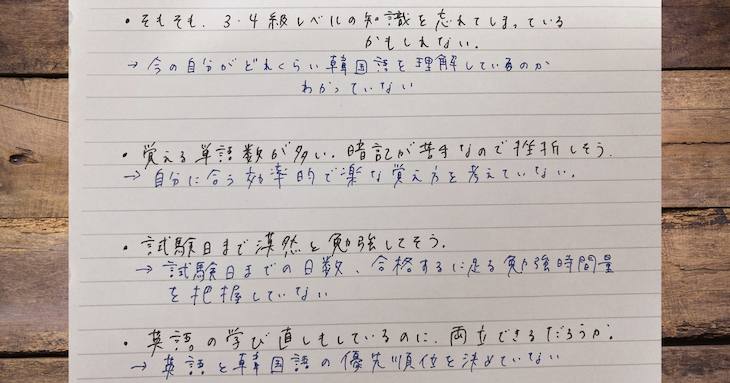 ・そもそも、3・4級レベルの知識を忘れてしまっている
かもしれない。
→ 今の自分がどれくらい韓国語を理解しているのか
わかっていない
・覚える単語数が多い、暗記が苦手なので挫折しそう。
→ 自分に合う効率的で楽な覚え方を考えていない。
・試験日まで漠然と勉強してそう。
→ 試験日までの日数、合格するに足る勉強時間量
を把握していない
・英語の学び直しもしているのに、両立できるだろうか。
→ 英語と韓国語の優先順位を決めていない